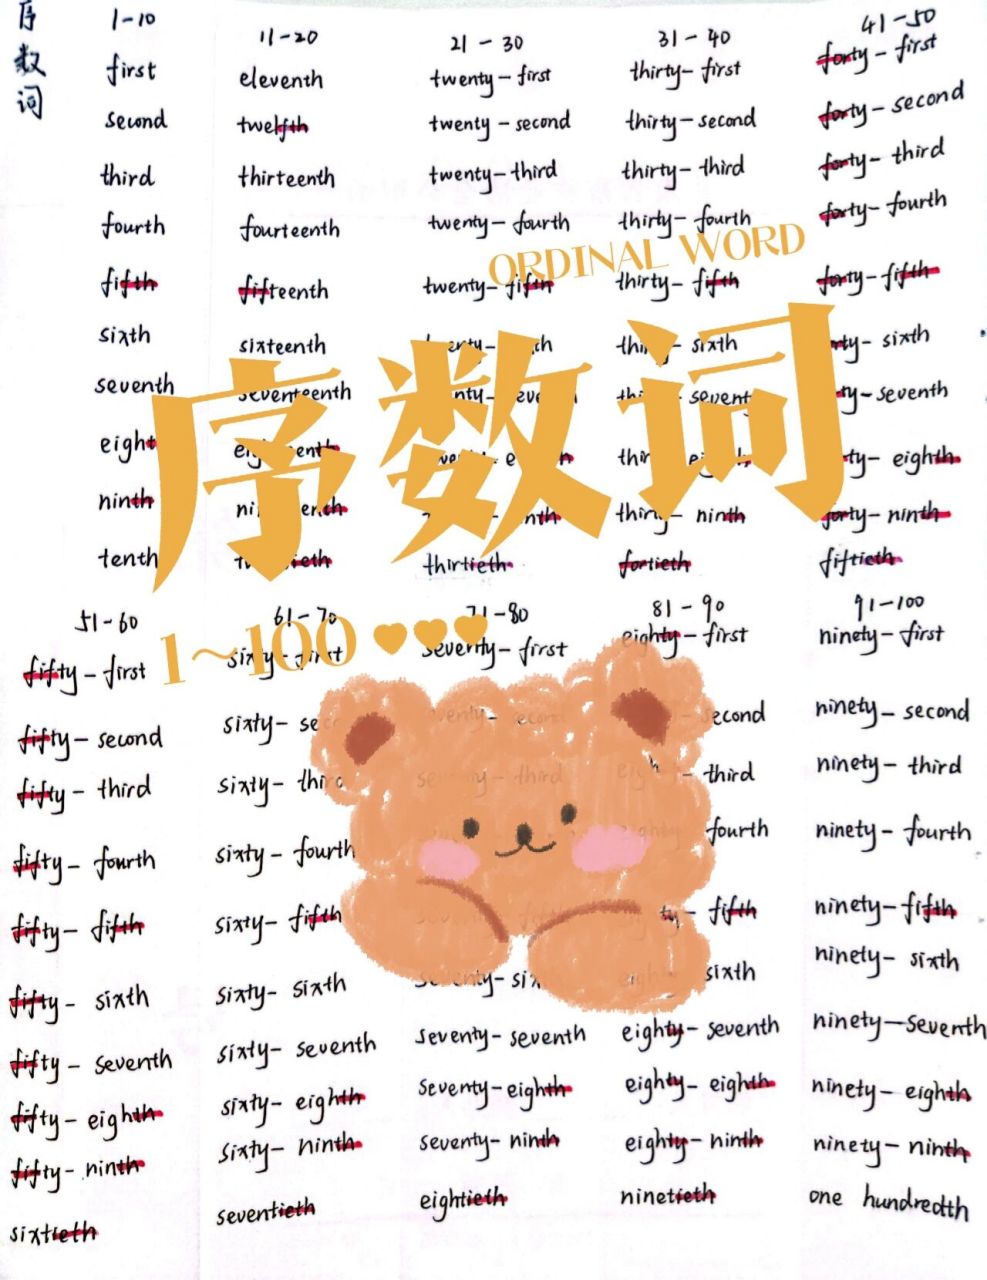 序数词
1-10
first
second
third
fourth
fifth
sixth
seventh
eight
ninth
tenth
11-20
eleventh
twelfth
thirteenth
fourteenth
fifteenth
sixteenth
seventeenth
21-30
twenty-first
twenty-second
twenty-third
twenty-fourth
twenty-fifth
thirtieth
31-40
thirty-first
thirty-second
thirty-third
thirty-fourth
thirty-fifth
sixth
thirty-ninth
fortieth
41-50
forty-first
forty-second
forty-third
forty-fourth
forty-fifth
sixth
seventh
eighth
forty-ninth
fiftieth
ORDINAL WORD
序数词
1~100
51-60
fifty-first
fifty-second
fifty-third
fifty-fourth
fifty-fifth
fifty-sixth
fifty-seventh
fifty-eighth
fifty-ninth
sixtieth
61-70
sixty-first
sixty-
sixty-third
sixty-fourth
sixty-fifth
sixty-sixth
sixty-seventh
sixty-eighth
sixty-ninth
seventieth
71-80
seventy-first
seventy-seventh
seventy-eighth
seventy-ninth
eightieth
81-90
eighty-first
second
third
fourth
fifth
sixth
eighty-seventh
eighty-eighth
eighty-ninth
ninetieth
91-100
ninety-first
ninety-second
ninety-third
ninety-fourth
ninety-fifth
ninety-sixth
ninety-seventh
ninety-eighth
ninety-ninth
one hundredth